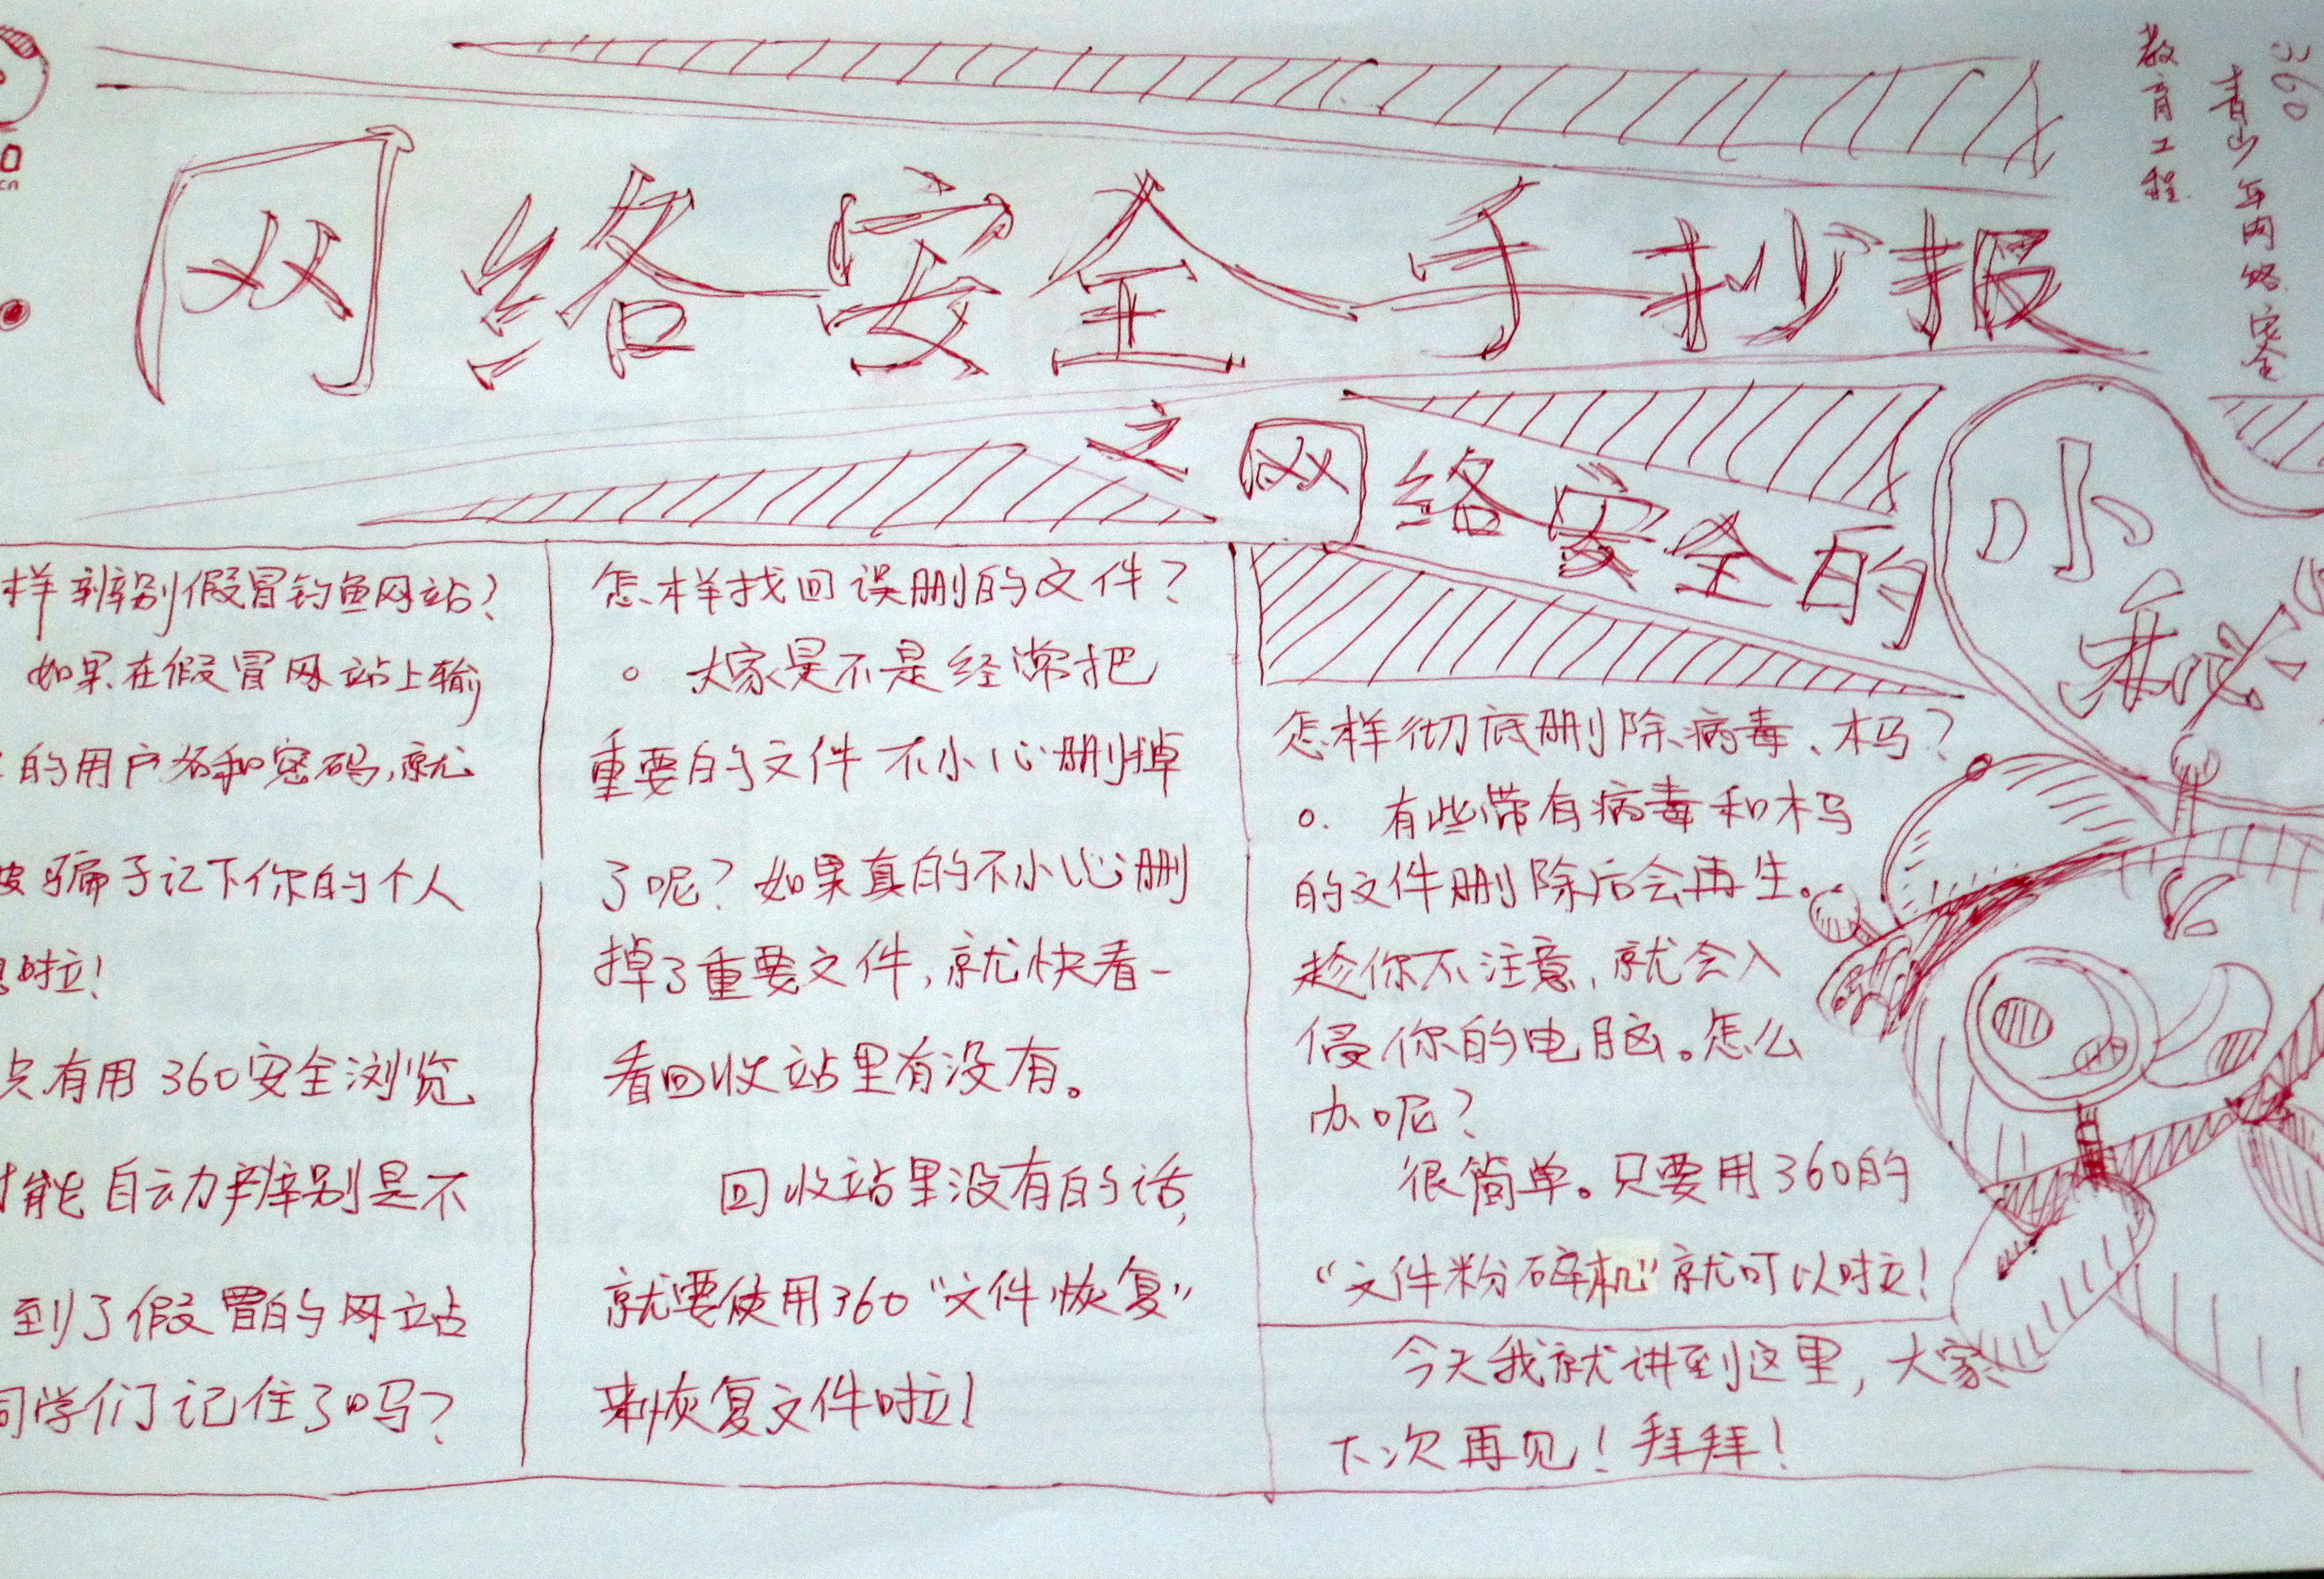 网络安全手抄报
之网络安全的
小秘
360
青少年网络安全
教育工程
cn
样辨别假冒钓鱼网站？
如果在假冒网站上输
的用户名和密码，就
被骗子记下你的个人
息啦！
只有用360安全浏览
才能自动辨别是不
到了假冒的网站
同学们记住了吗？
怎样找回误删的文件？
。大家是不是经常把
重要的文件不小心删掉
了呢？如果真的不小心删
掉了重要文件，就快看一
看回收站里有没有。
回收站里没有的话，
就要使用360“文件恢复”
来恢复文件啦！
怎样彻底删除病毒、木马？
。有些带有病毒和木马
的文件删除后会再生。
趁你不注意，就会入
侵你的电脑。怎么
办呢？
很简单。只要用360的
“文件粉碎机”就可以啦！
今天我就讲到这里，大家
下次再见！拜拜！